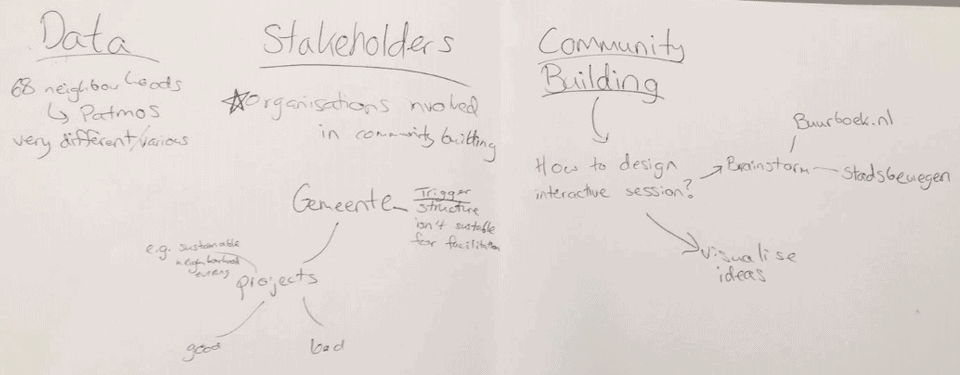 Data
68 neighbourhoods
↳ Patmos
very different/various
Stakeholders
☆Organisations nvolved
in community builting
Gemeente
Trigger
structure
isn't suitable
for facilitation
e.g. sustainable
neighbourhood
projects
good
bad
Community
Building
How to design
interactive session?
Brainstorm
Buurboek.nl
Stadsbewegen
visualise
ideas